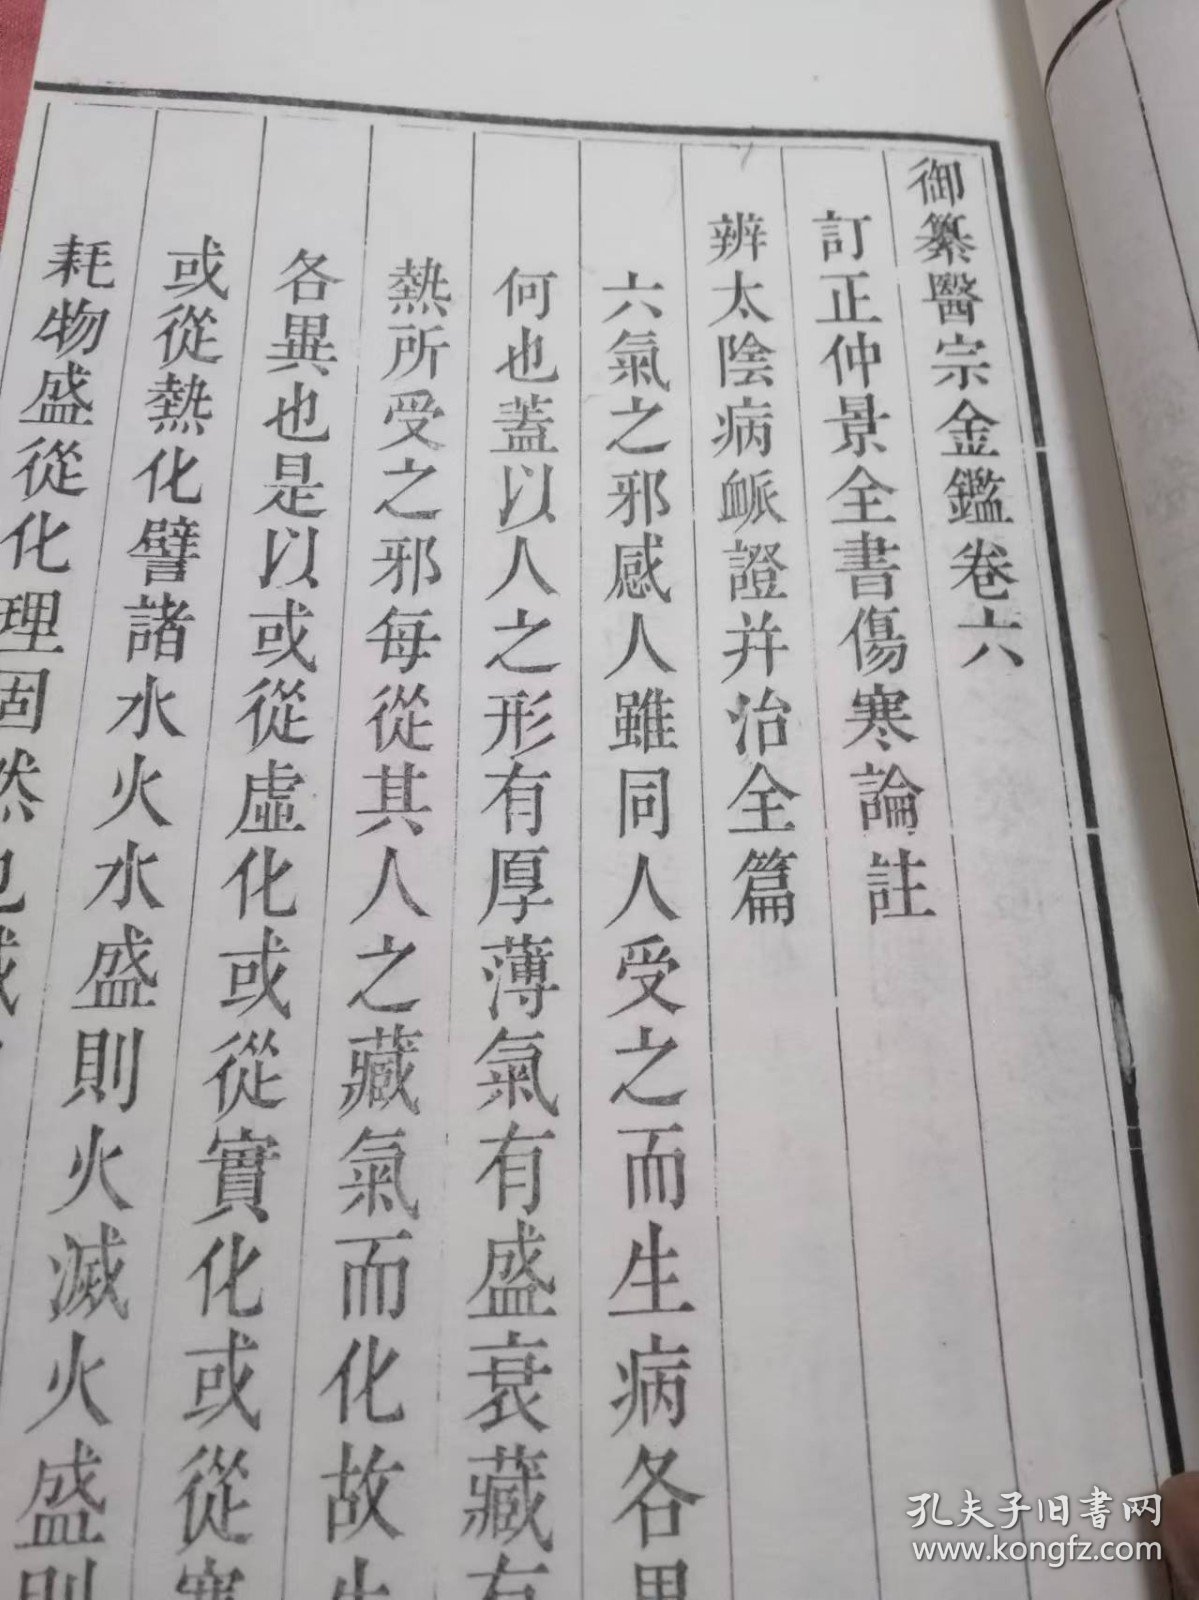 御纂醫宗金鑑卷六
訂正仲景全書傷寒論註
辨太陰病脈證并治全篇
六氣之邪感人雖同人受之而生病各異
何也蓋以人之形有厚薄氣有盛衰藏有
熱所受之邪每從其人之藏氣而化故生
各異也是以或從虛化或從實化或從寒
或從熱化譬諸水火水盛則火滅火盛則
耗物盛從化理固然也誠
孔夫子旧书网
www.kongfz.com